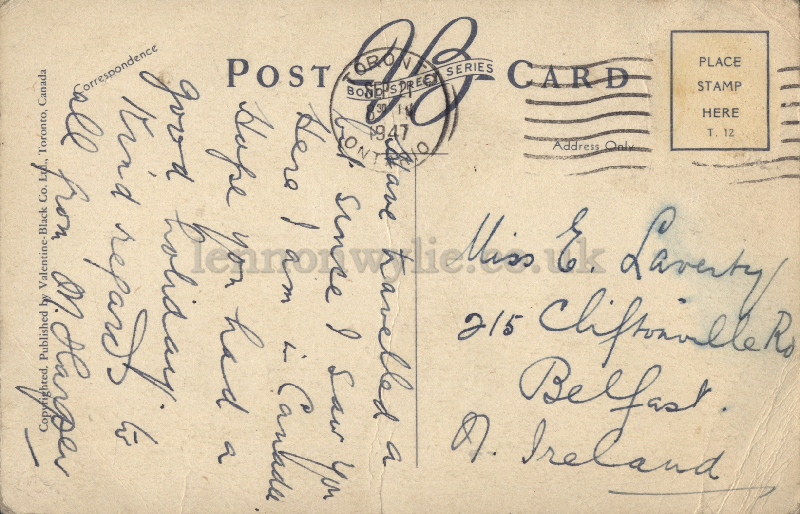 POST CARD
VB
BOND STREET SERIES
TORONTO
1947
ONTARIO
PLACE
STAMP
HERE
T. 12
Correspondence
Address Only
Have travelled a
bit since I saw you
Here I am in Canada.
Hope you had a
good holiday.
Kind regards to
all from M. Harper
Miss E. Laverty
215 Cliftonville Rd
Belfast.
N. Ireland
Copyrighted. Published by Valentine-Black Co. Ltd., Toronto, Canada
lennonwylie.co.uk